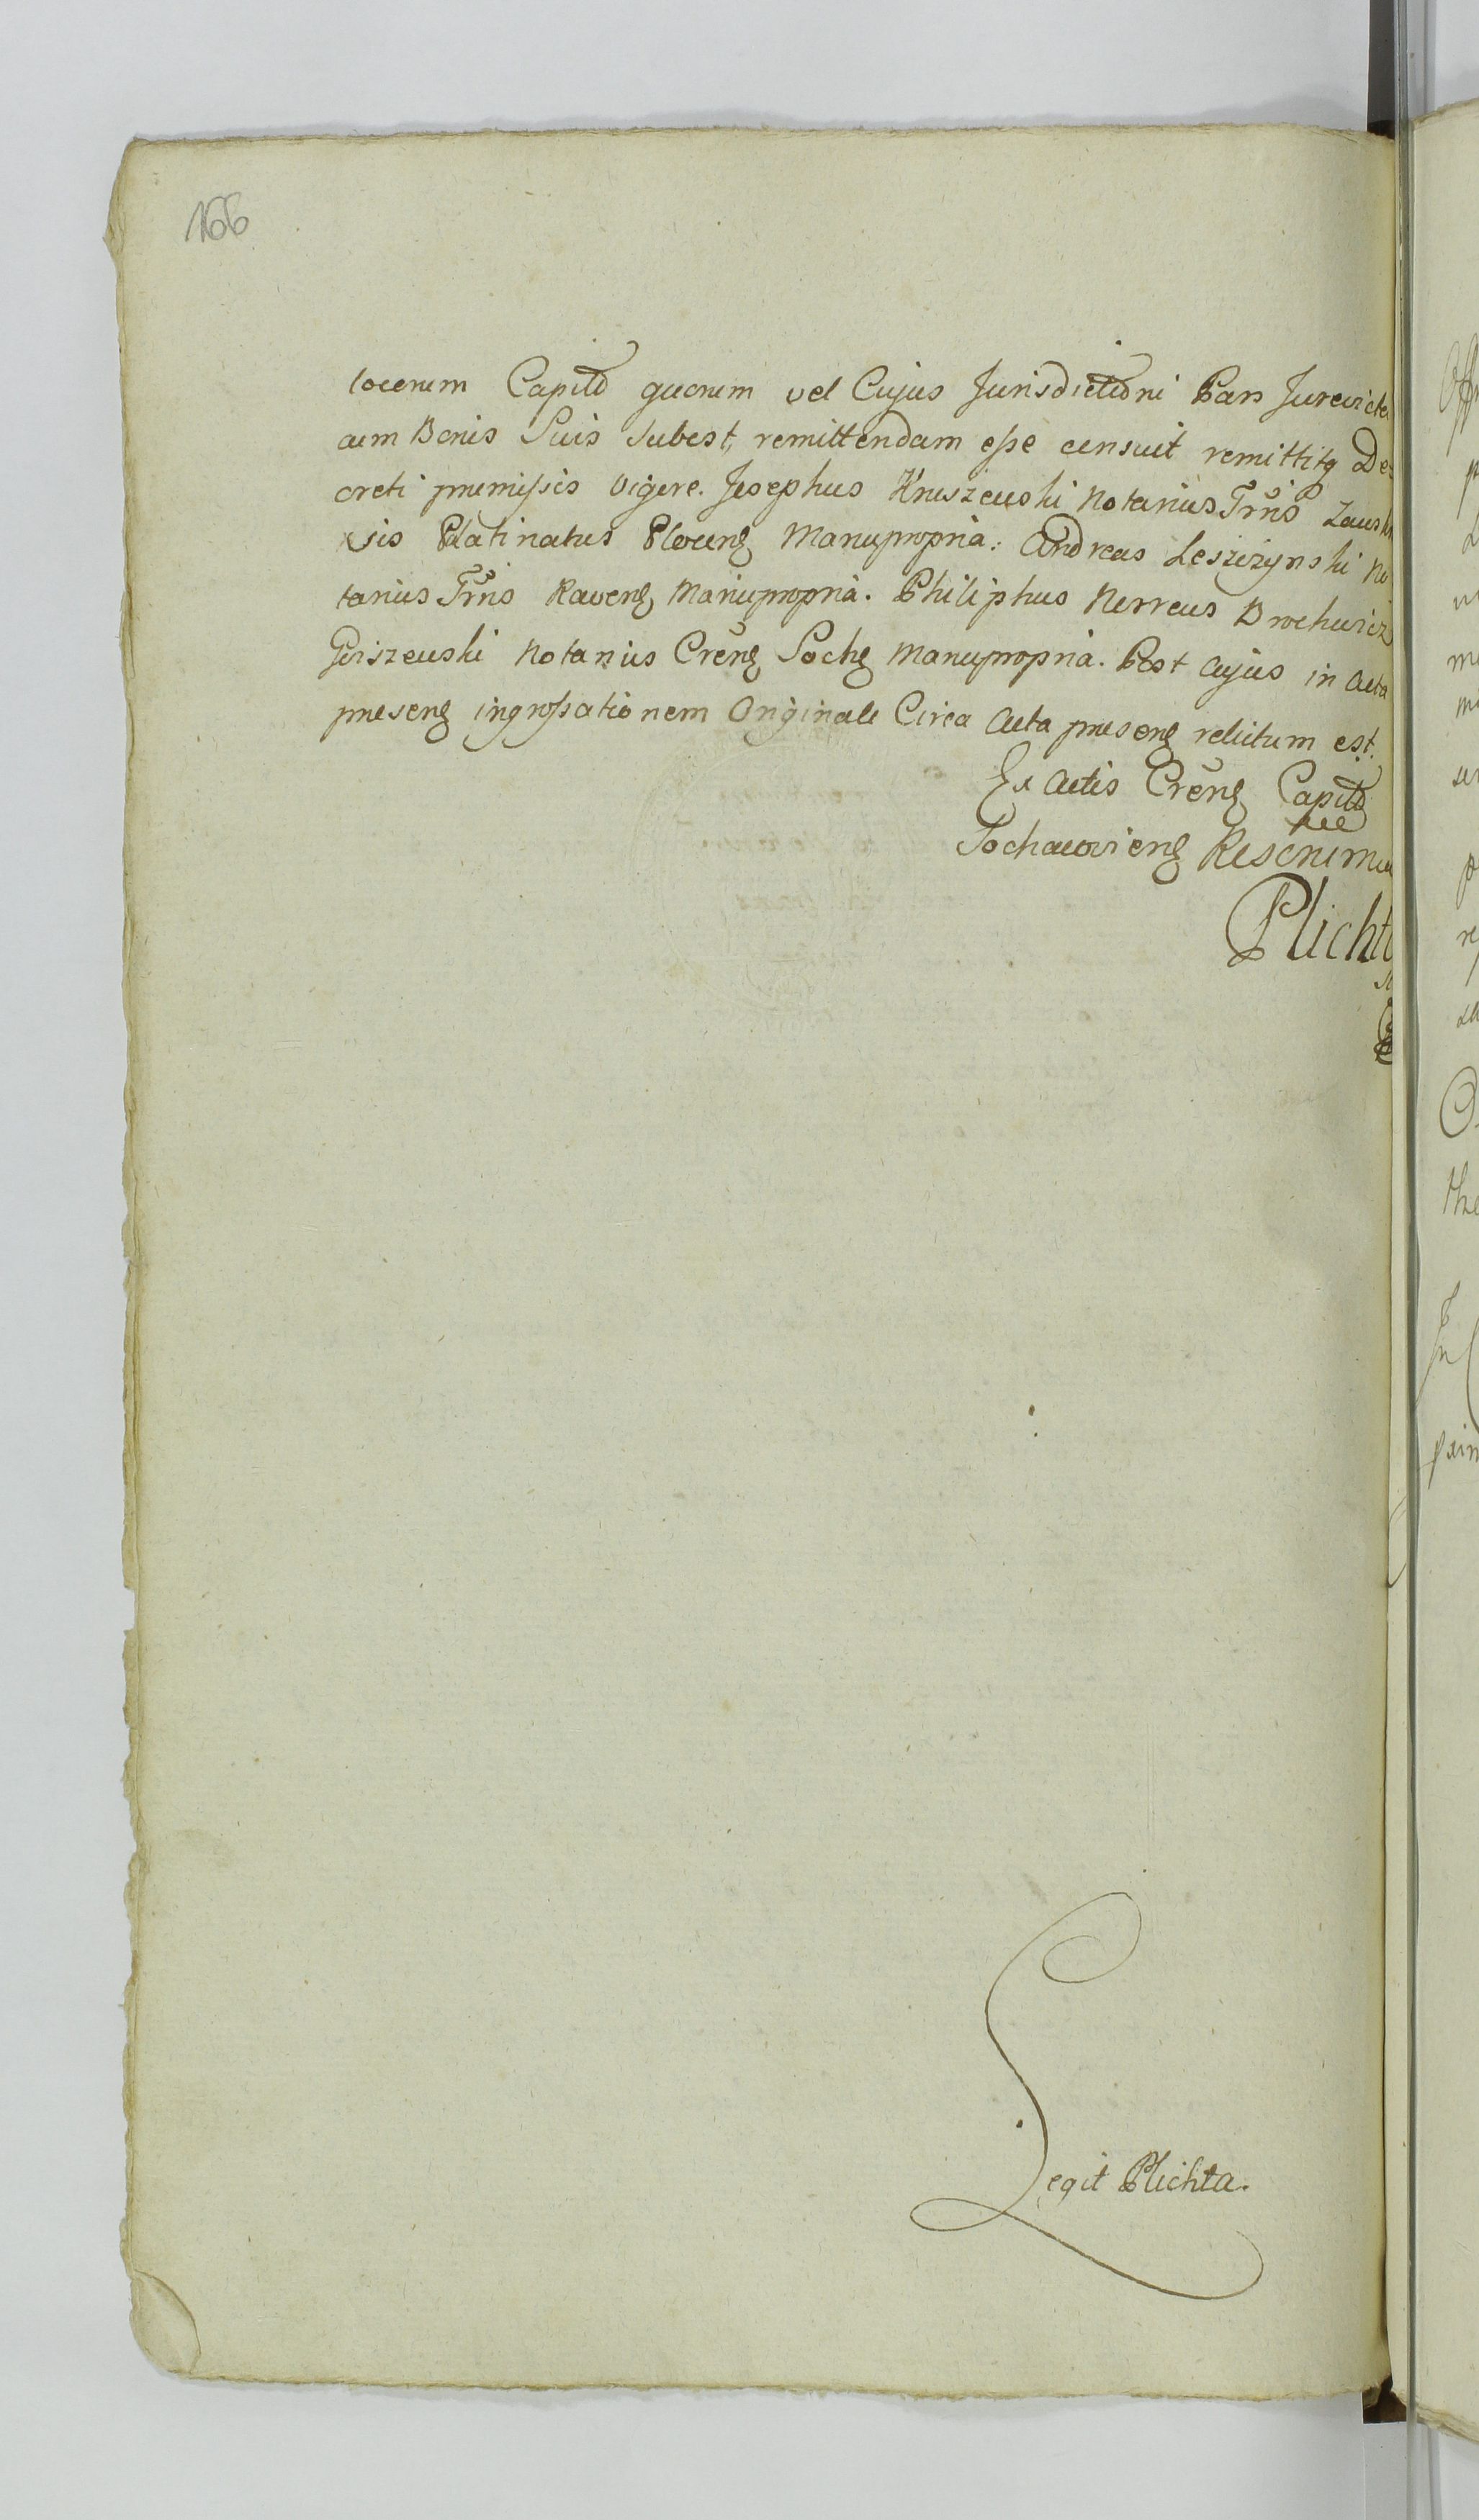 166
locorum Capitl quorum vel Cujus Jurisdictioni Pars Jurevicta
cum Bonis Suis subest, remittendam esse censuit remittitq De
creti premissis vigore. Josephus Kruszewski Notarius Trris Zawskr
sis Platinatus Plocens Manupropria. Andreas Leszczynski No
tarius Trris Ravens Manupropria. Philiphus Nerreus Brochwicz
Notarius Crens Soch Manupropria. Post cujus in Acta
presens ingrossationem Originale Circa Acta presens relictum est.
Ex Actis Crens Capitl
Sochacoviens Rescriptum
Plichta
Legit Plichta.